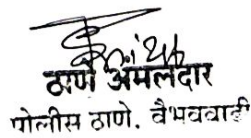 ठाणे अंमलदार
पोलीस ठाणे. वैभववाडी